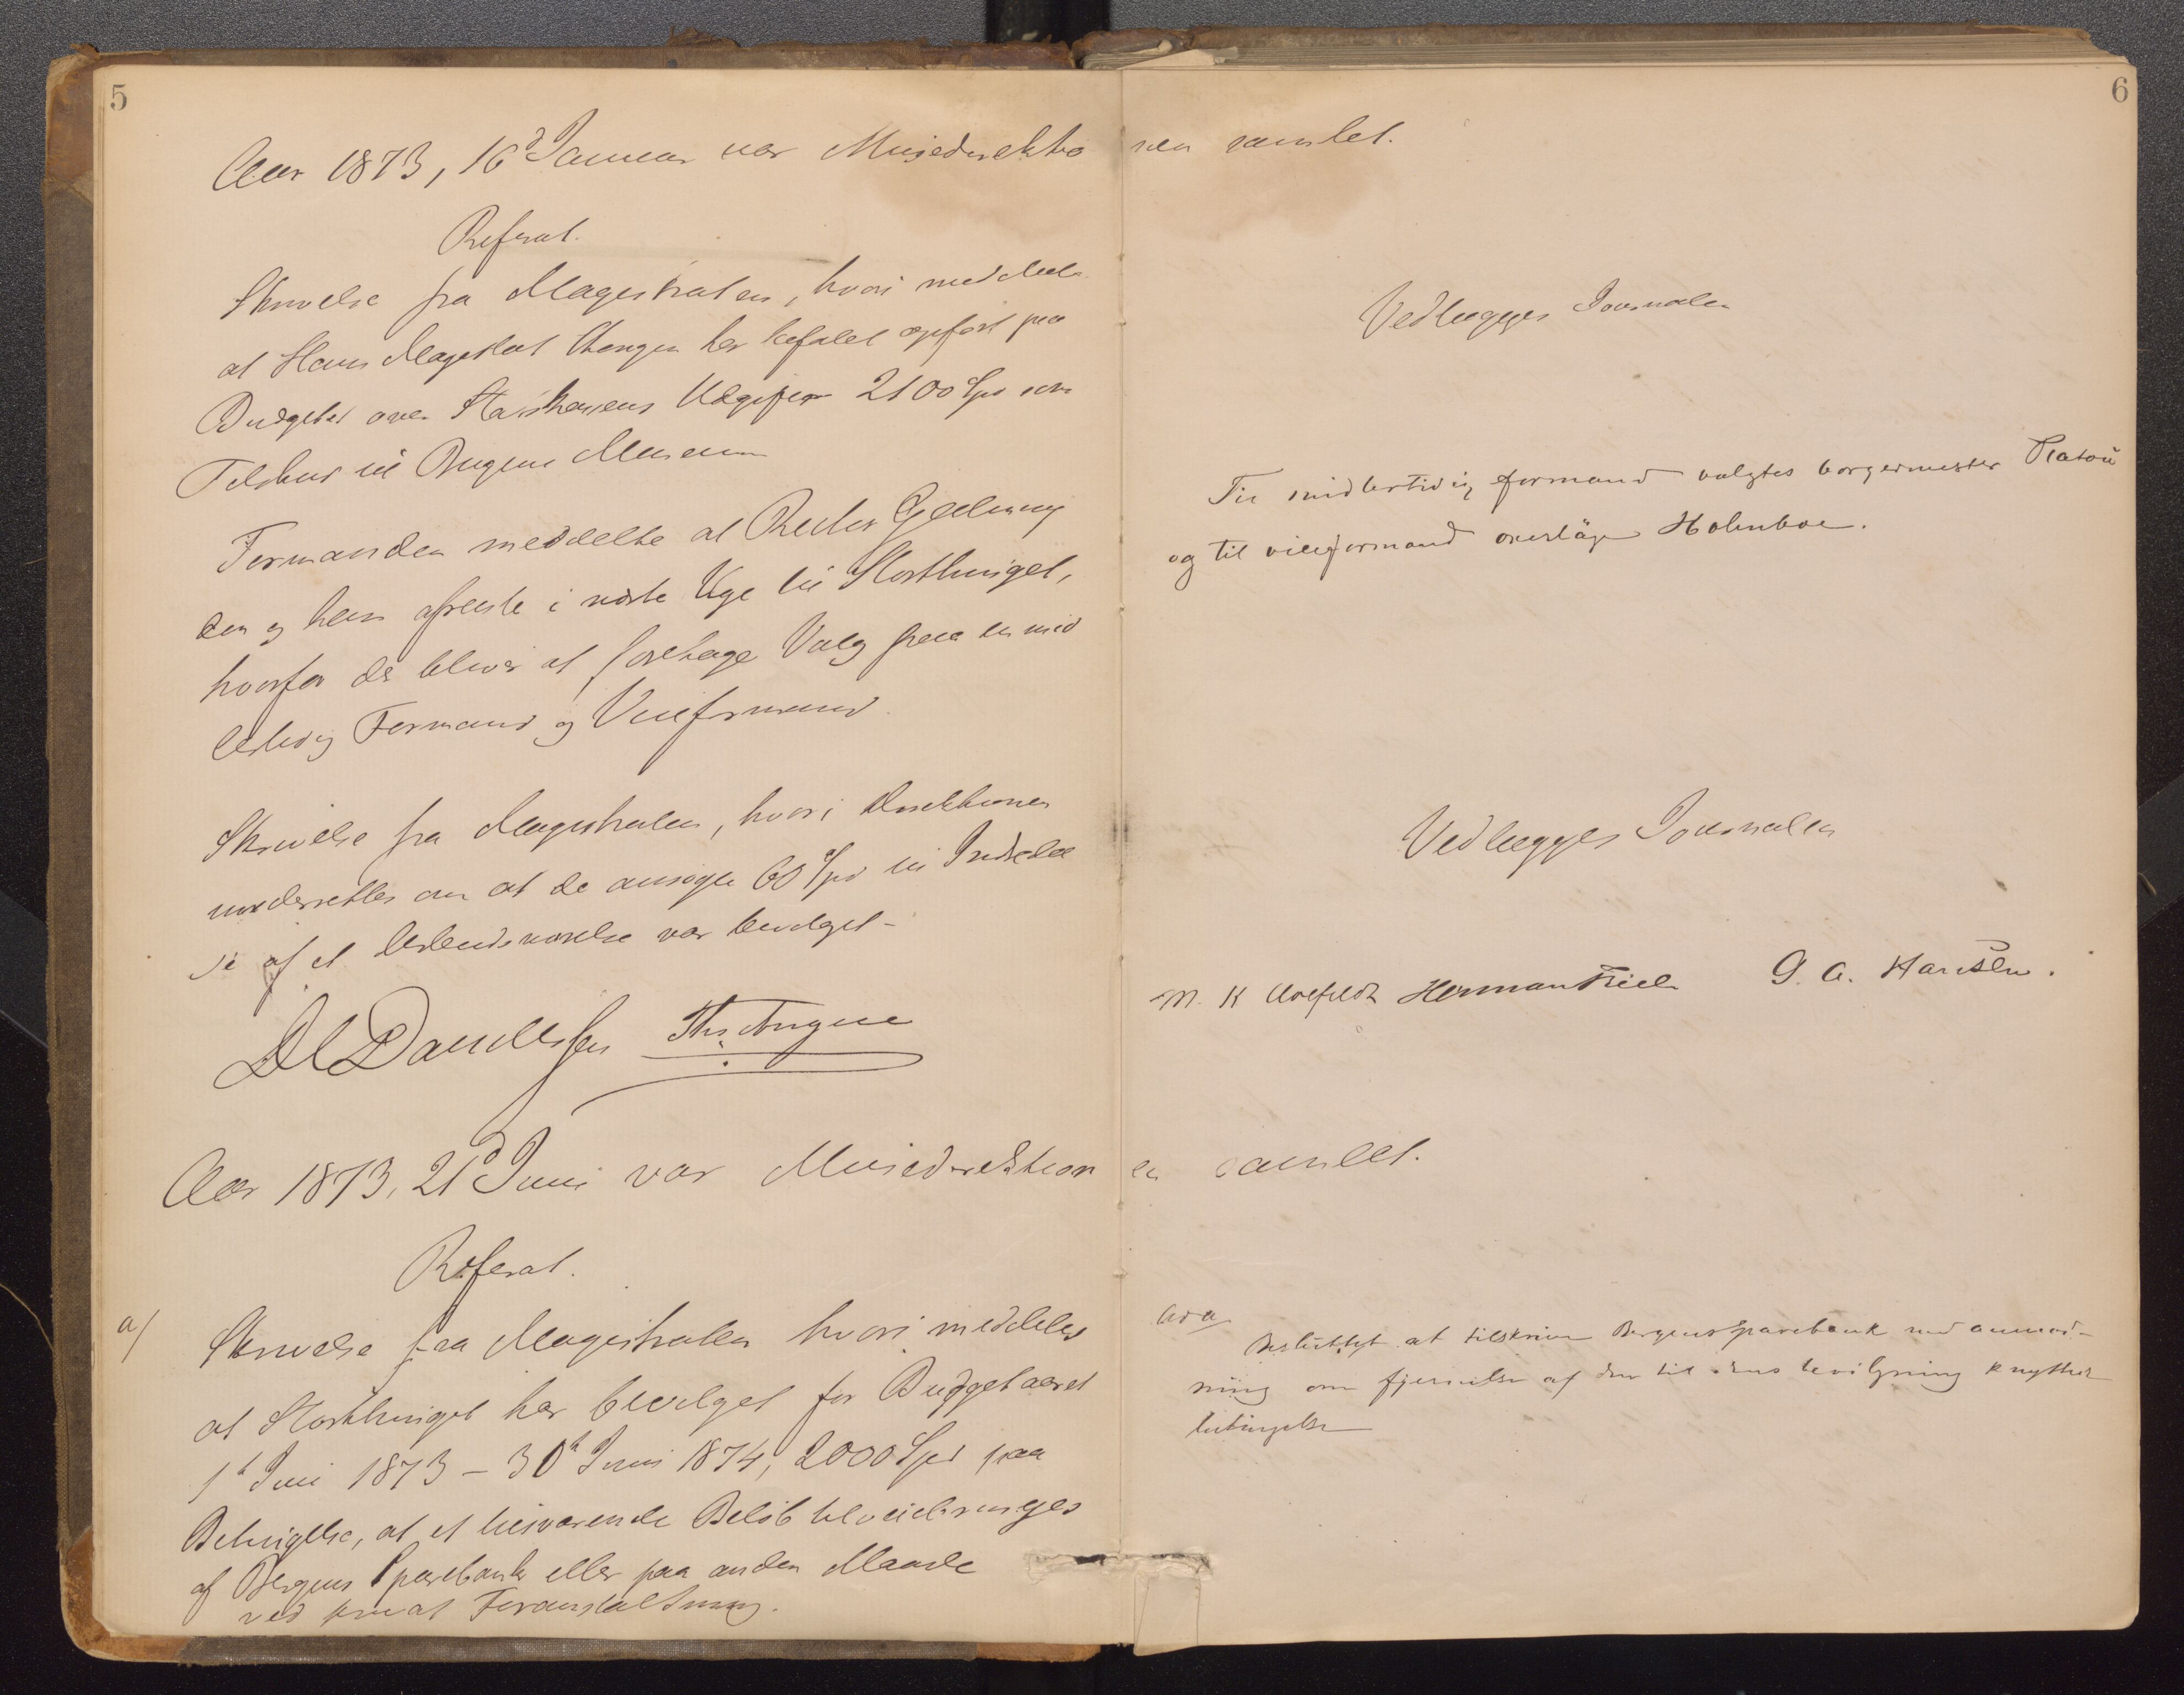 5
Aar 1873, 16d Januar var Musedirektio
Referat.
Skrivelse fra Magistraten, hvori meddeles
at Hans Majestæt Kongen har befalet opført paa
Budgettet over Statskassens Udgifter 2100 Spd som
Tilskud til Bergens Museum
Formanden meddelte at Rector Gjelmuy
den og han afreiste i næste Uge til Storthinget,
hvorfor det bliver at foretage Valg paa en mid
lertidig Formand og Viceformand.
Skrivelse fra Magistraten, hvori Direktionen
underrettes om at de ansøgte 60 Spd til Indkøb
af et var bevilget -
D C Danielssen
Aar 1873, 21d Juni var Musedirektion
Referat.
a/
Skrivelse fra Magistraten hvori meddeles
at Storthinget har bevilget for Budgetaaret
1t Juli 1873 - 30t Juni 1874, 2000 Spd paa
Betingelse, at et tilsvarende Beløb tilveiebringes
af Bergens Sparebank eller paa anden Maade
ved privat Foranstaltning.
6
nen samlet.
Vedlægges Journalen
Til midlertidig formand valgtes borgermester Platoü
og til viceformand overläge Holmboe.
Vedlægges Journalen
M. K Herman Friele G. A. Hansen.
en samlet.
ad a
Besluttet at tilskrive Bergens Sparebank med anmod-
ning om fjernelse af den til dens bevilgning knyttede
betingelse